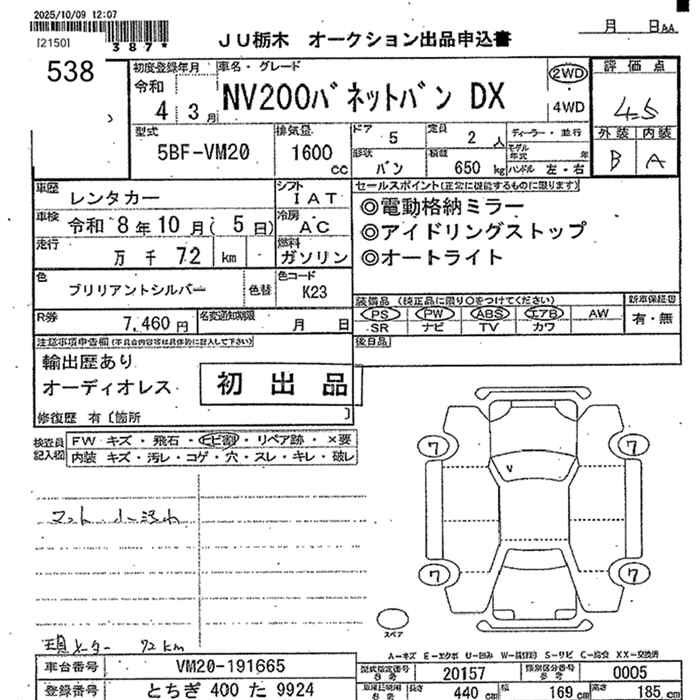 2025/10/09 12:07
[2150]
387*
JU栃木 オークション出品申込書
月 日AA
538
初度登録年月
令和
4 3月
車名・グレード
NV200バネットバン DX
2WD
4WD
評価点
4.5
外装 内装
B A
型式
5BF-VM20
排気量
1600
cc
ドア
5
定員
2人
ディーラー・並行
モデル年式 年
形状
バン
積載
650 kg
ハンドル 左・右
車歴
レンタカー
シフト
IAT
車検
令和 8年10月(5日)
冷房
AC
走行
万 千 72 km
燃料
ガソリン
色
ブリリアントシルバー
色替
色コード
K23
R券
7,460円
名変通知期限
月 日
セールスポイント(正常に機能するものに限ります)
◎電動格納ミラー
◎アイドリングストップ
◎オートライト
装備品(純正品に限り○をつけてください)
新車保証書
PS PW ABS エアB AW
SR ナビ TV カワ
有・無
後日品
注意事項申告欄(不具合内容等は具体的に記入して下さい)
輸出歴あり
オーディオレス
初出品
修復歴 有〔箇所 〕
検査員記入欄
FW キズ・飛石・ヒビ割・リペア跡・×要
内装 キズ・汚レ・コゲ・穴・スレ・キレ・破レ
マット 小汚れ
現メーター 72km
7
7
7
7
スペア
A-キズ E-エクボ U-凹み W-補修跡 S-サビ C-腐食 XX-交換済
車台番号
VM20-191665
登録番号
とちぎ 400 た 9924
型式指定番号
参考
20157
類別区分番号
参考
0005
440 cm
幅
169 cm
高さ
185 cm